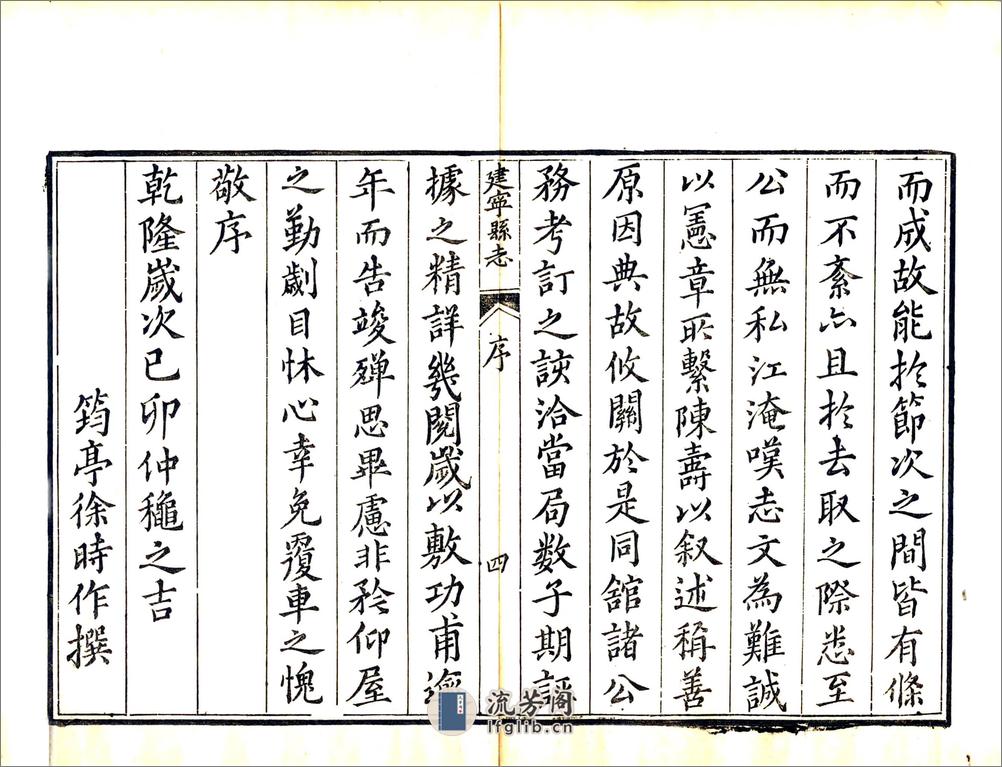 而成故能於節次之間皆有條
而不紊亦且於去取之際悉至
公而無私江淹嘆志文為難誠
以憲章所繫陳壽以叙述稱善
原因典故攸關於是同舘諸公
務考訂之詼洽當局数子期
建寧縣志
序
四
據之精詳幾閱歲以敷功甫
年而告竣殫思畢慮非矜仰屋
之勤劌目怵心幸免覆車之愧
敬序
乾隆歲次已卯仲穐之吉
筠亭徐時作撰
流芳阁
lfglib.com